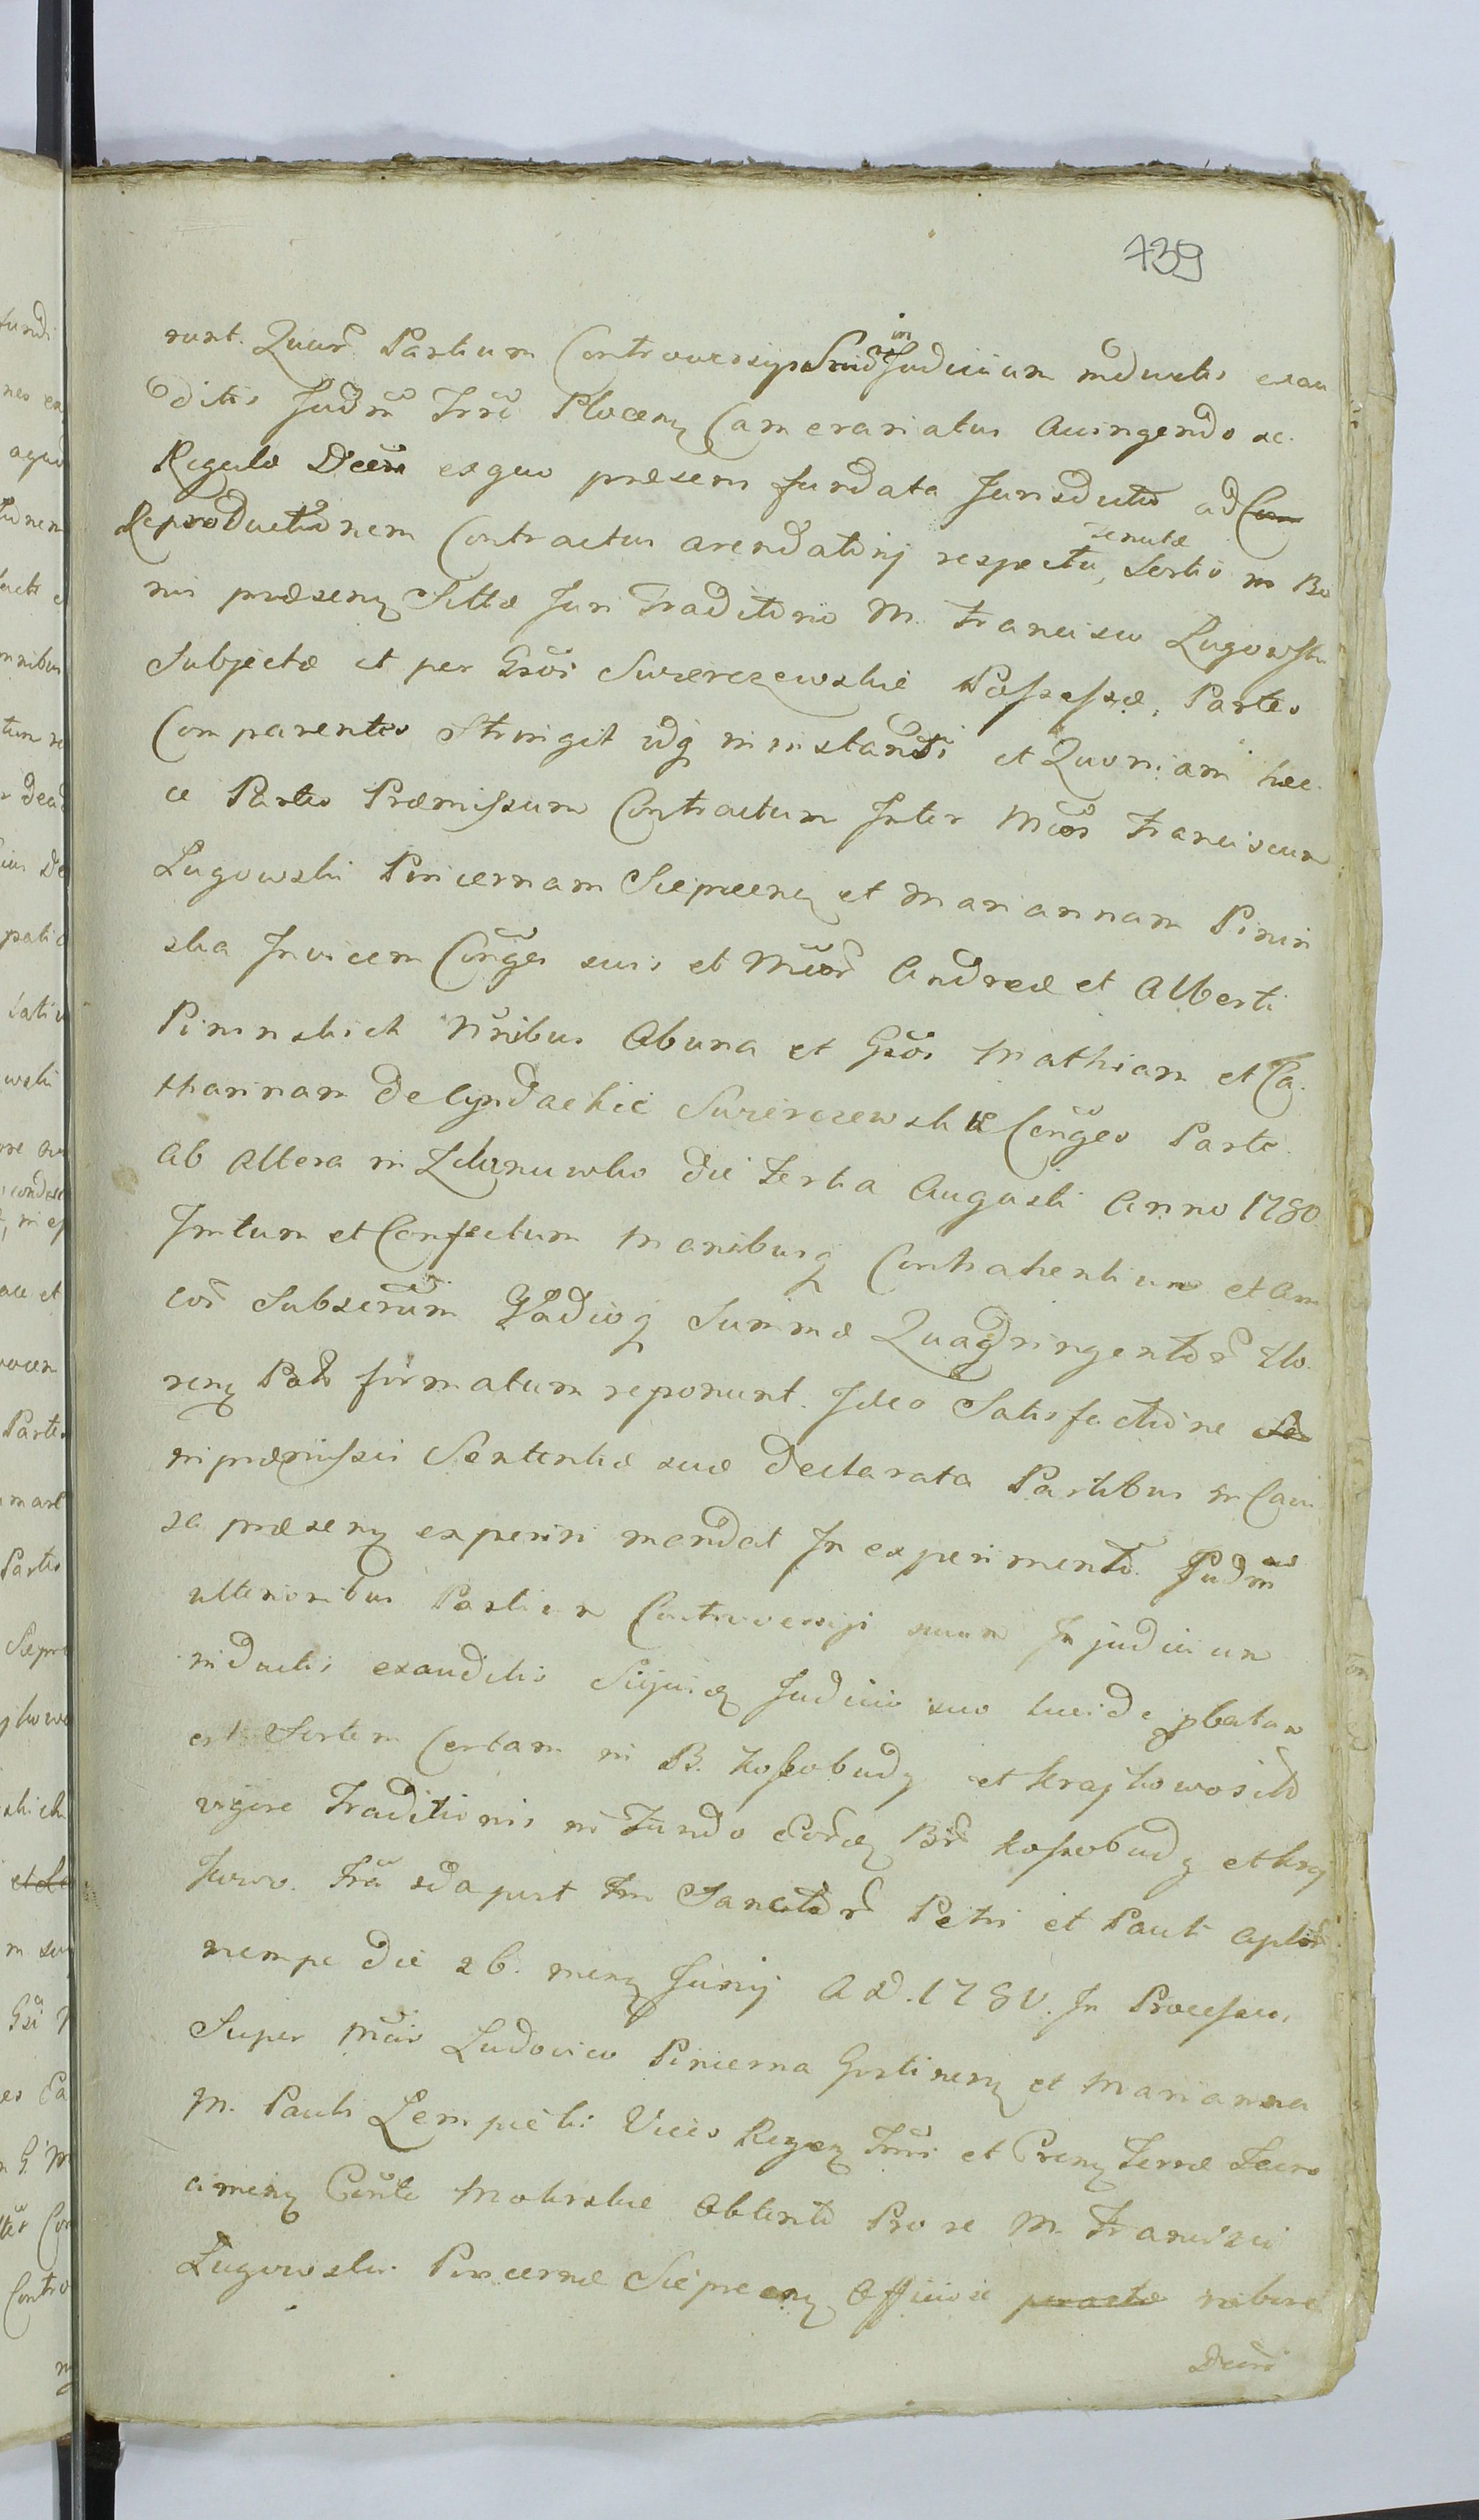 739
runt. Quar̃ Partium Controversijs Suis in Judicium inductis exau
ditis Judm̃ Trr̃e Plocen̄ Camerariatus Accingendo se
Regulæ Decr̃i exquo præsens fundata Jurisdictio ad
Reproductionem Contractus arendatorij respectu tenutæ Sortis in Bo
nis præsen̄ Sittæ Juri Traditorio M. Francisco Lugowski
Subjectæ et per Gsõs Swierczewskie Possessæ, Partes
Comparentes Stringit idq̃ in instanti et Quoniam hæc
ce Partes Præmissum Contractum Inter Mcõs Franciscum
Lugowski Pincernam Sieprcen̄ et Mariannam Pinin
ska Invicem Cõnges suis et Mcor̃ Andreæ et Alberti
Pininskich Nr̃nibus Abuna et Gsõs Mathiam et Ca
tharinam de Cyndackie Swierczewskie Cõnges Parte
ab Altera in Zdunowko die Tertia Augusti Anno 1780
Initum et Confectum Manibusq̃ Contrahentium et Ami
cor̃ Subscriptum Vadioq̃ Summæ Quadringentor̃ Flo
ren̄ Pol̃ firmatum reponunt. Ideo Satisfactione
in præmissis Sententiæ suæ declarata Partibus in Cau
sa præsen̄ experiri mandat In experimento. Judm̃
ulterioribus Partium Controversijs suum In judicium
inductis exauditis Siquidem Judicio suo lucide pbatum
est Sortem Certam in B. Kossobudy et Krajkowo sitam
vigore Traditionis in Fundo Eordē Br̃ Kossobudy et Kraj
kowo. Fra 2da post Fm̃ Sanctor̃ Petri et Pauli Aplor̃
nempe die 26. men̄ Junij A D. 1780. In Processu,
Super Mcis Ludovico Pincerna Gostinen̄ et Marianna
M. Pauli Lempicki Vices Regen̄ Trr̃is et Cren̄ Terræ Zacro
cimen̄ Cõnte Mokrskie Obtento Pro re M. Francisci
Lugowski Pincernæ Sieprcen̄ Officiose
Decr̃i